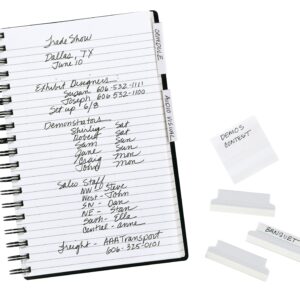 Trade Show
Dallas, TX
June 10
Exhibit Designers:
Susan 606-532-1111
Joseph 606-532-1100
Set up 6/8
Demonstrators
Shirley Sat
Robert Sat
Sam Sun
Jane Sun
Craig Mon
John Mon
Sales Staff
NW - Steve
West - John
SN - Dan
NE - Stan
South - Ella
Central - Anne
Freight - AAA Transport
606-325-0101
SCHEDULE
AUDIO VISUAL
DEMO'S
CONTEST
BANQUET